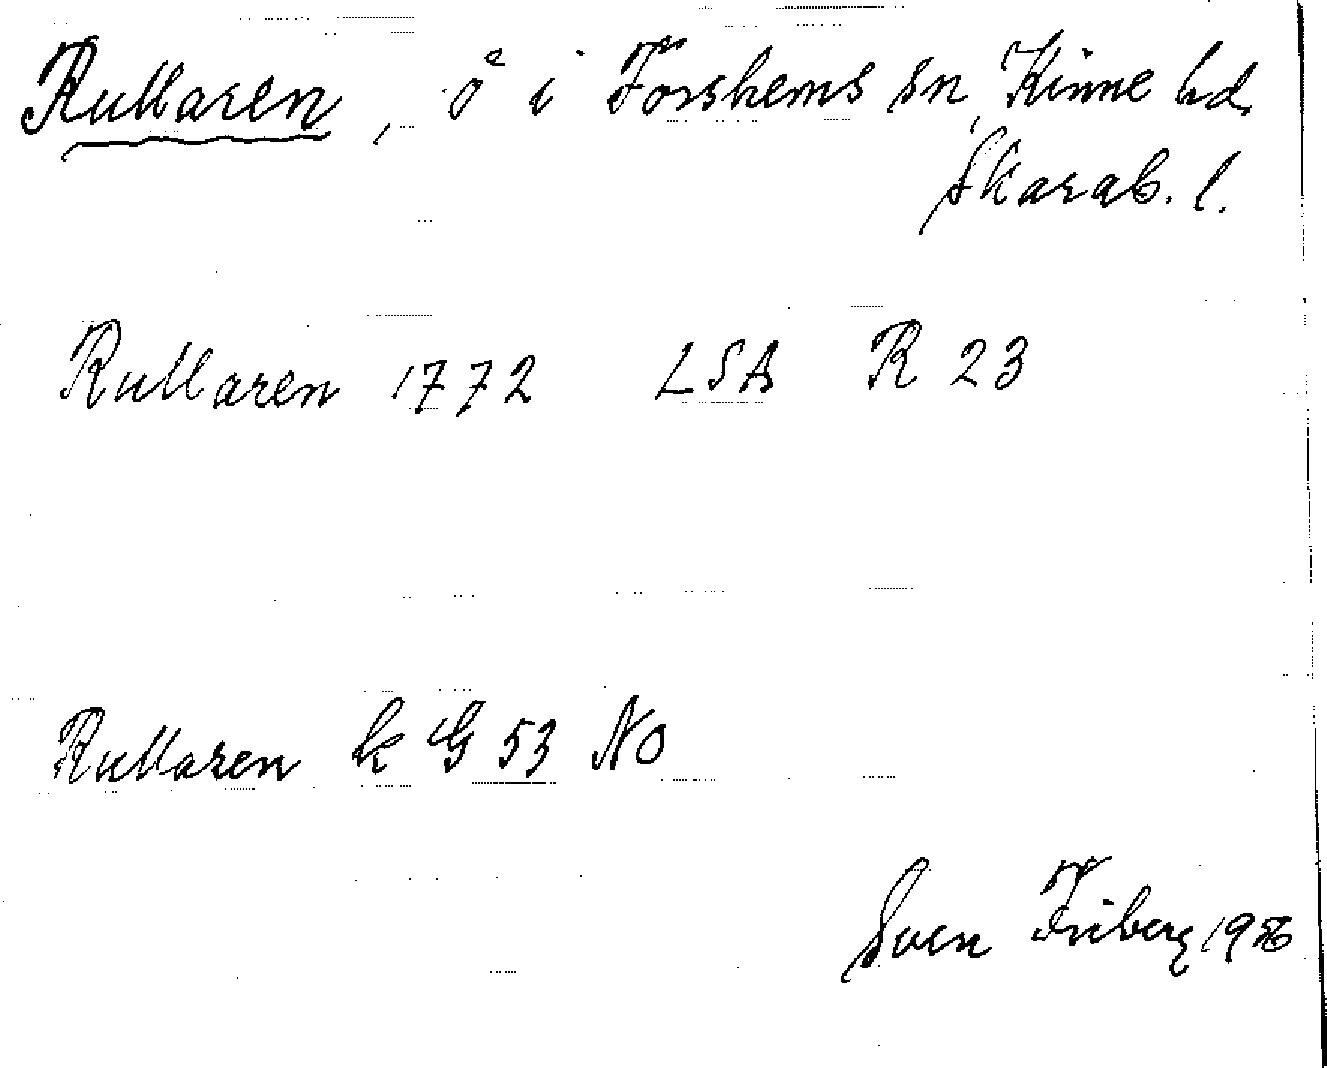 Rullaren, ö i Forshems sn, Kinne hd.
Skarab. l.
Rullaren 1772 LSA R 23
Rullaren k G 53 NO
Sven Friberg 1956